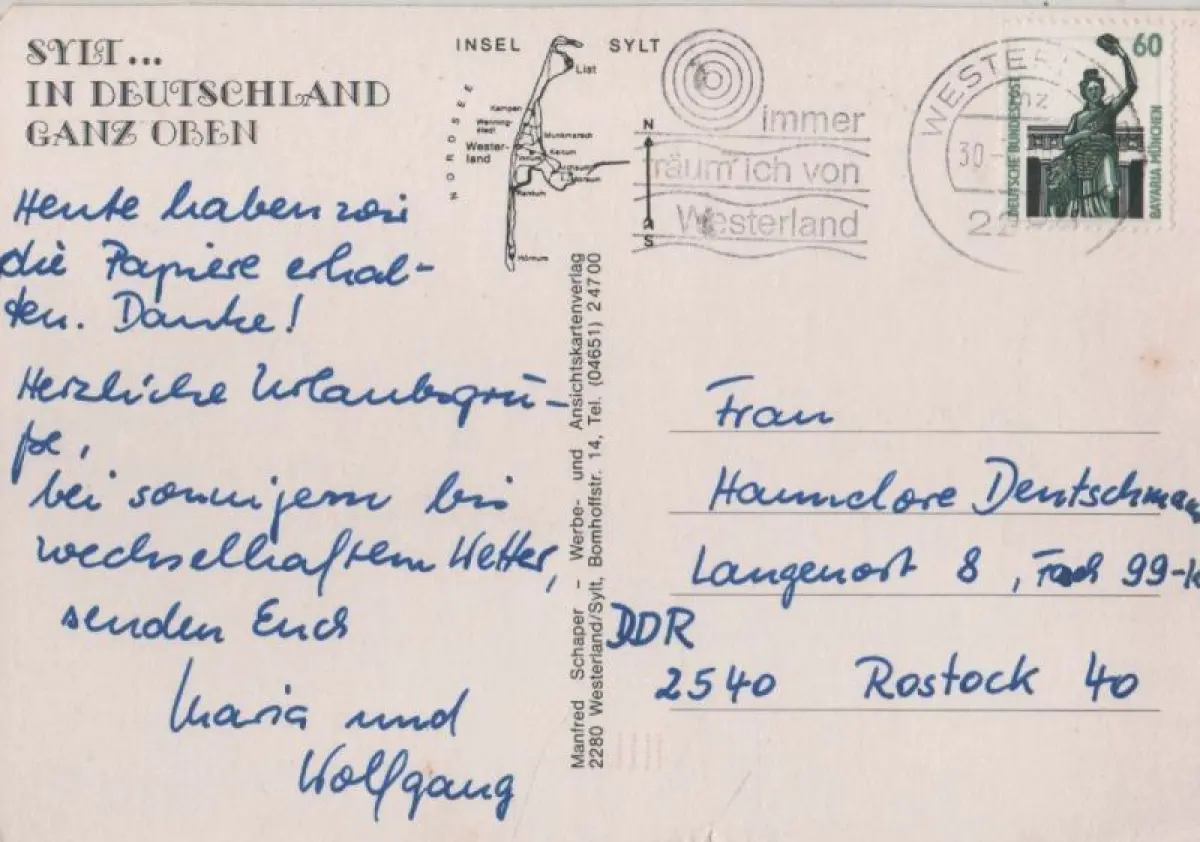 SYLT...
IN DEUTSCHLAND
GANZ OBEN
Heute haben wir
die Papiere erhal-
ten. Danke!
Herzliche Urlaubsgrü-
ße,
bei sonnigem bis
wechselhaftem Wetter,
senden Euch
Maria und
Wolfgang
INSEL SYLT
NORDSEE
List
Kampen
Wenning-
stedt
Munkmarsch
Wester-
land
Keitum
Tinnum
Rantum
Hörnum
N
S
Manfred Schaper – Werbe- und Ansichtskartenverlag
2280 Westerland/Sylt, Bomhoffstr. 14, Tel. (04651) 2 47 00
immer
träum' ich von
Westerland
WESTER
30
22
60
DEUTSCHE BUNDESPOST
BAVARIA MÜNCHEN
Frau
Hannelore Deutschman
Langenort 8, Fach 99-
DDR
2540 Rostock 40